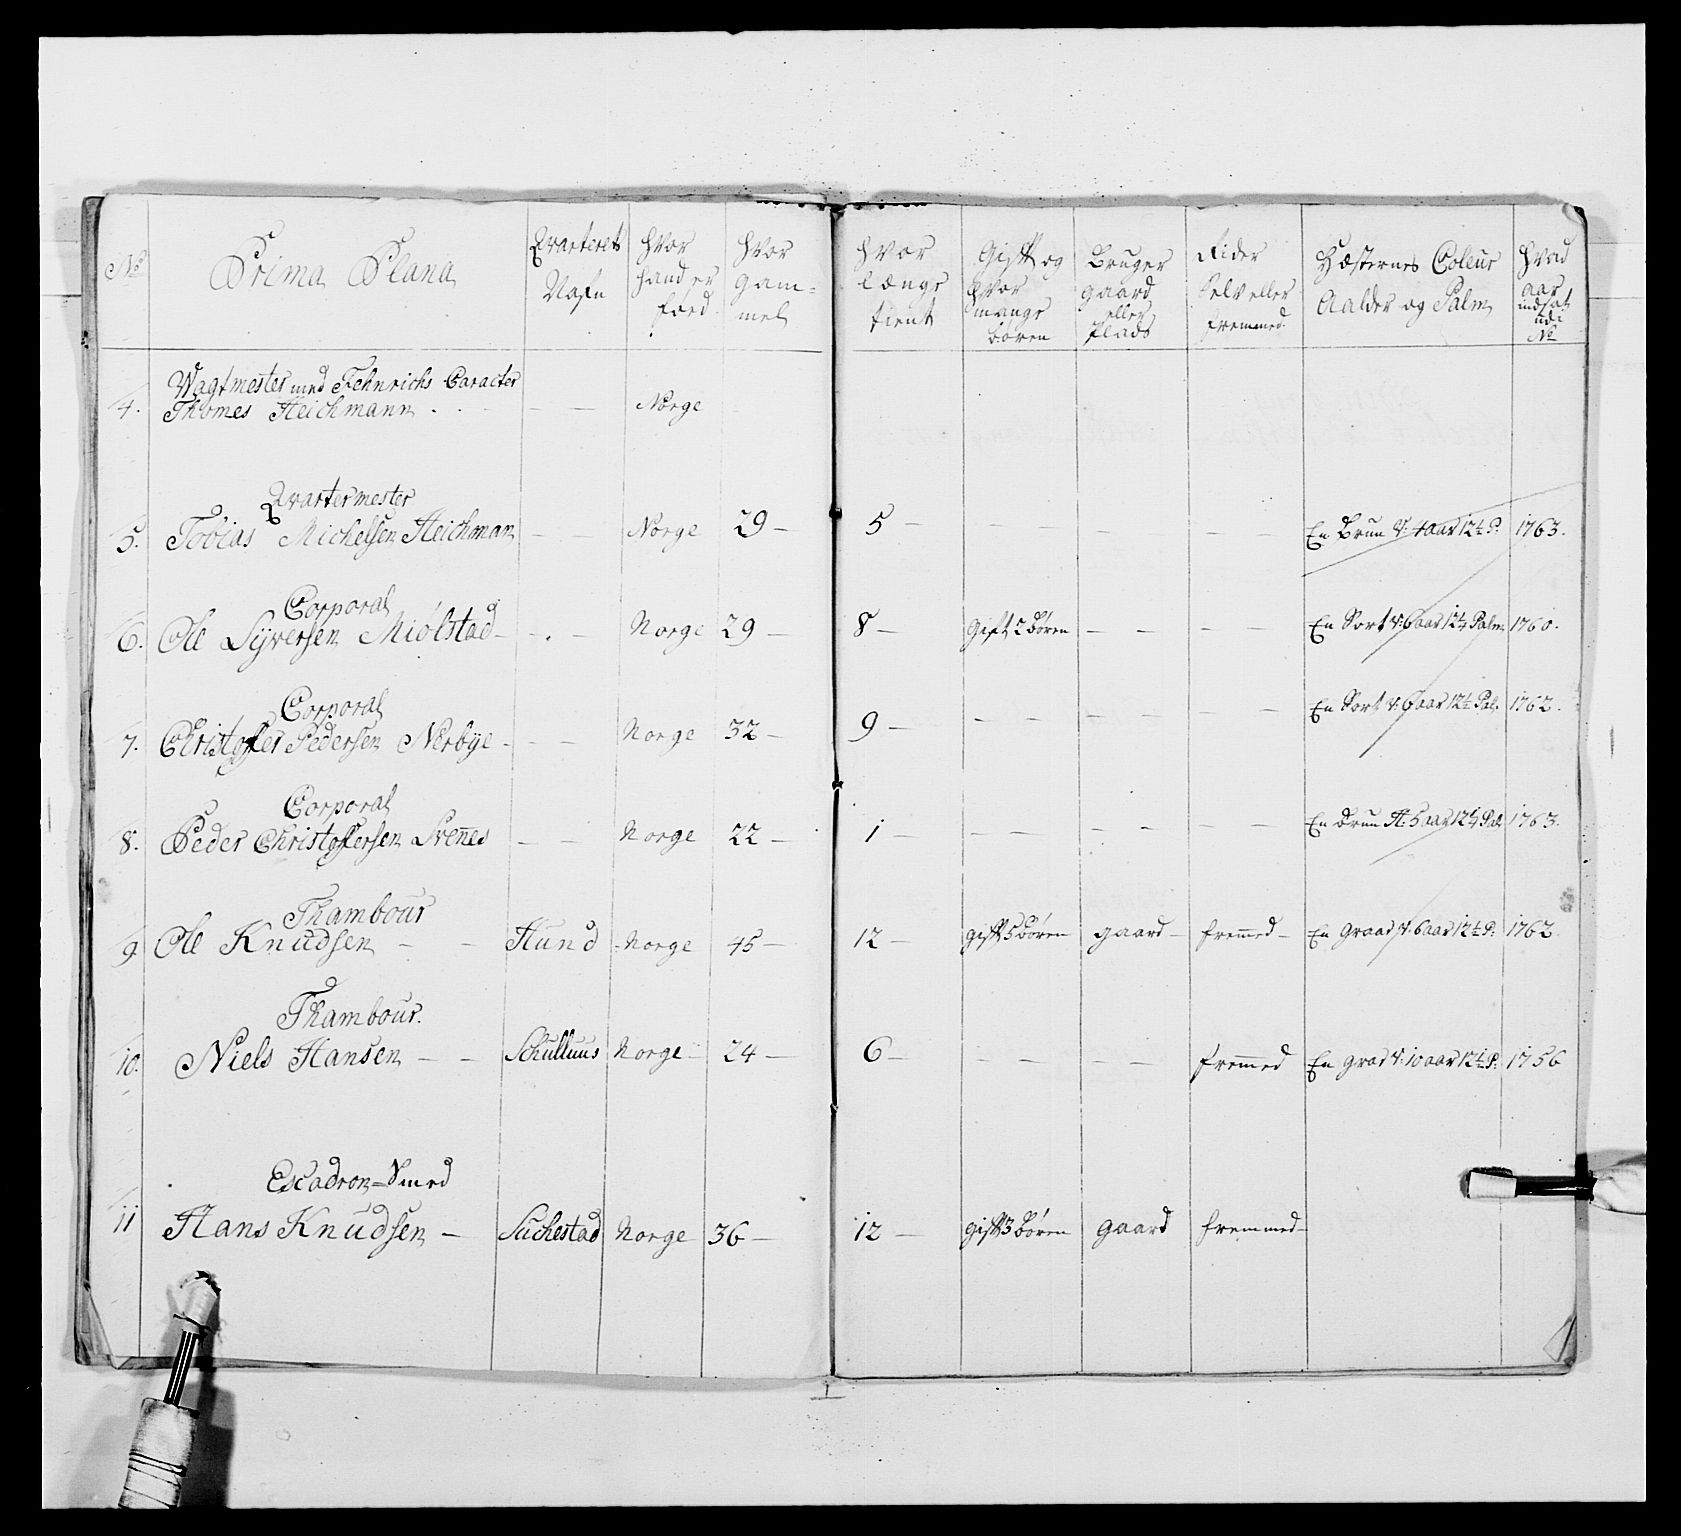 No
Prima Plana
Qvarterets Nafn
Hvor hand er föed
Hvor Gam= mel
Hvor længe tient
Gift og Hvor mange börn
Bruger gaard eller Plads
Rider Selv eller fremmed
Hæsternes Coleur Aalder og Palm
Hvad aar indsat udi No
Wagtmester med Fehnrichs Caracter
4. Thomes Heichmann - - - Norge
Qvartermester
5. Tobias Michelsen Heichman - - Norge 29 - 5 - - - - - - En Brun V: 4 aar 12½ P. 1763.
Corporal
6. Ole Syversen Miölstad - - - Norge 29 - 8 - Gift 2 Börn - - - - En Sort V: 6 aar 12½ Palm 1760.
Corporal
7. Christoffer Pedersen Nerbye - - - Norge 32 - 9 - - - - - - - En Sort V: 6 aar 12½ Pal. 1762.
Corporal
8. Peder Christoffersen Svenes - - Norge 22 - 1 - - - - - - - En Brun H: 5 aar 12½ Pal 1763.
Thambour
9. Ole Knudsen - - Hund - Norge 45 - 12 - gift 5 Börn gaard - fremed - En Graa V: 6 aar 12½ P: 1762.
Thambour.
10. Niels Hansen - - Schulluus Norge - 24 - 6 - - - - - fremed En graa V: 10 aar 12½ P: 1756
Escadron=Smed
11 Hans Knudsen - Suchestad Norge 36 - 12 - gift 3 Börn gaard fremmed -